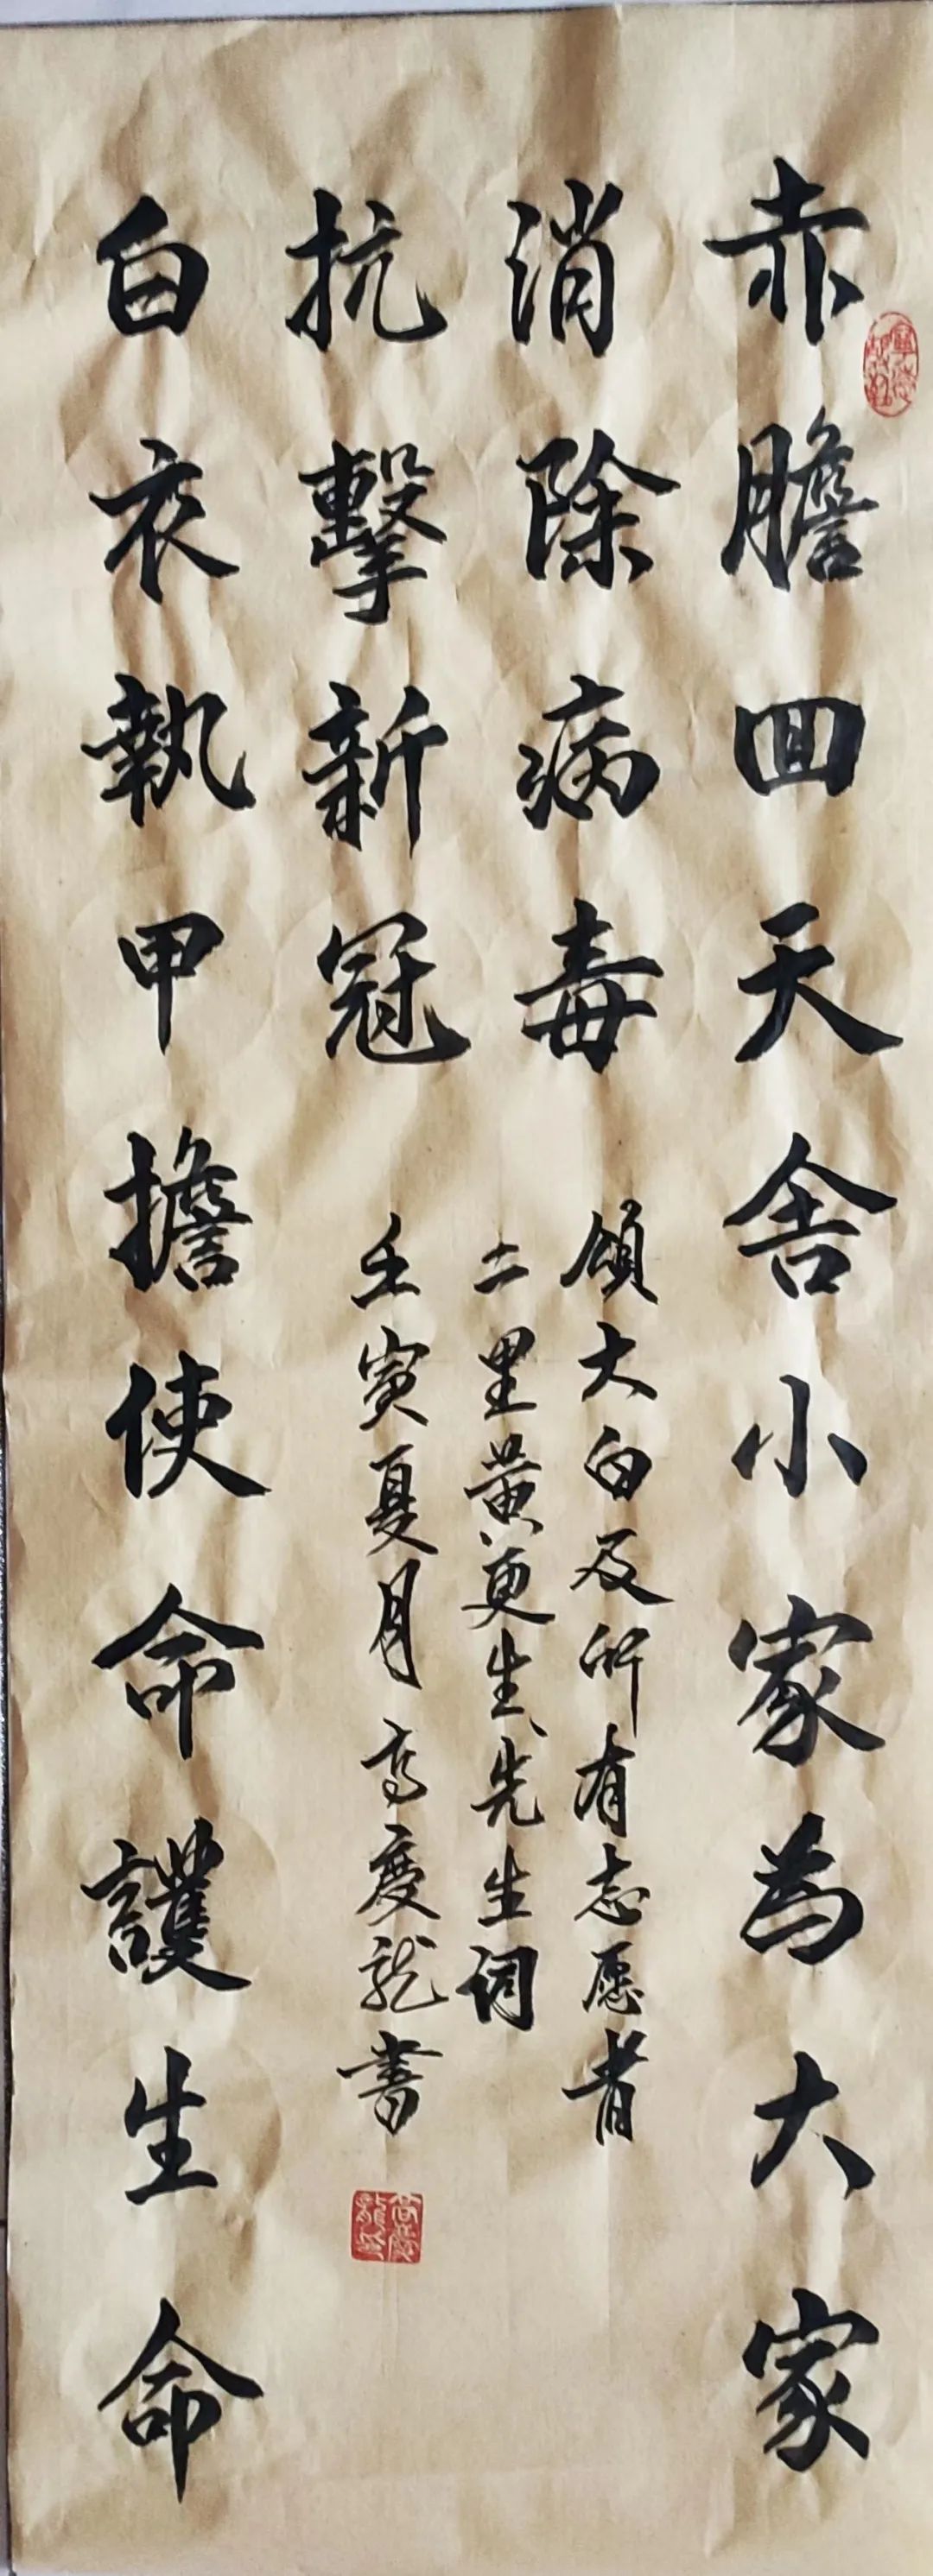 赤膽回天舍小家為大家
消除病毒
抗擊新冠
白衣執甲擔使命護生命
頌大白及所有志愿者
二里黄更生先生词
壬寅夏月高慶龙書
高慶龍印